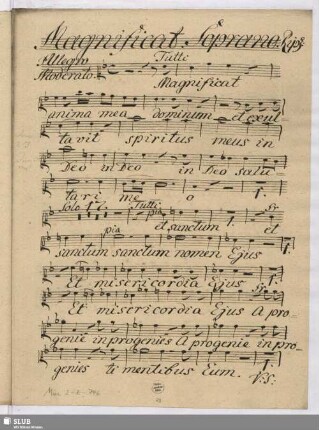 Magnificat. Soprano. Rip:
Allegro Tutti
Moderato.
Magnificat
anima mea dominum et exul-
tavit spiritus meus in
Deo in Deo in Deo salu-
tari me o
Solo Tutti
pia
et sanctum et
pia
sanctum sanctum nomen Ejus
Et misericordia Ejus
Et misericordia Ejus A pro-
genie in progenies A progenie in pro-
genies ti mentibus Eum.
V:S:
SLUB